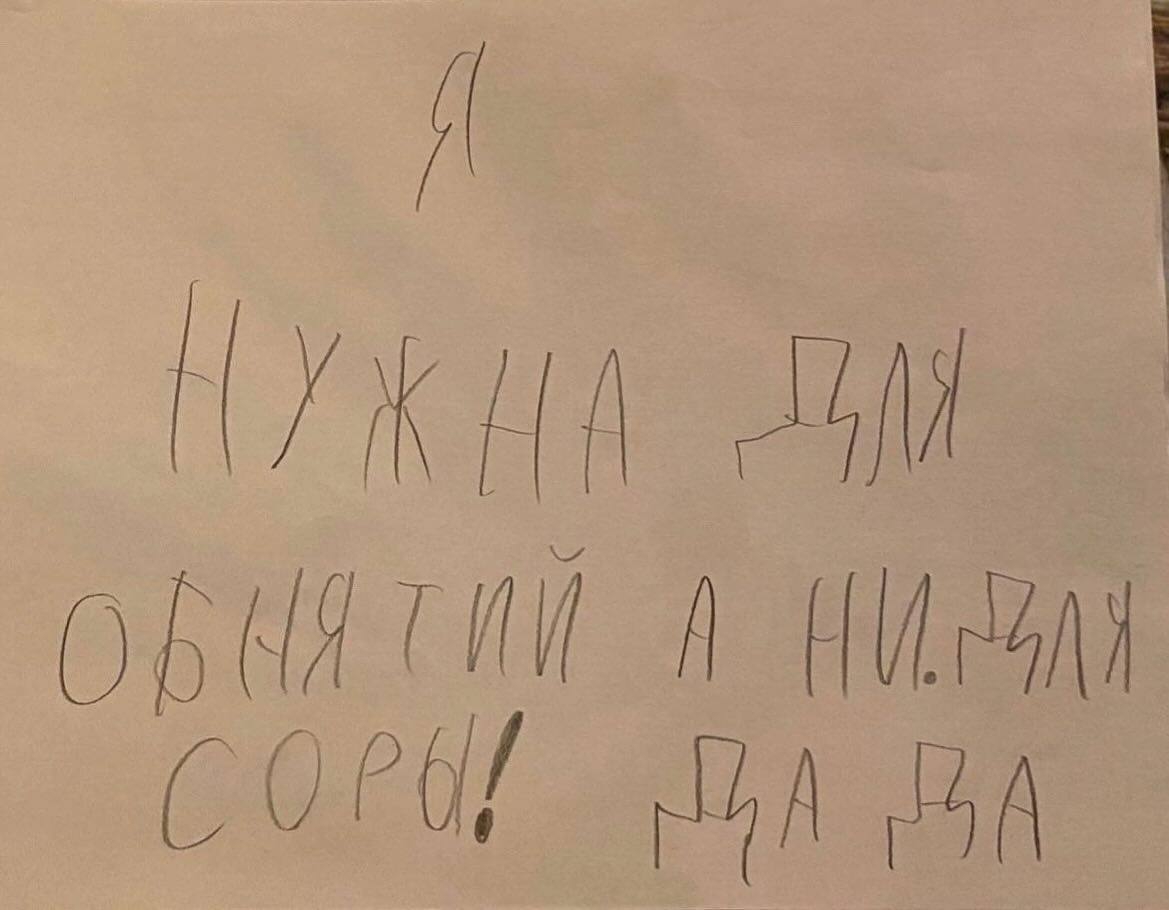 Я
НУЖНА ДЛЯ
ОБНЯТИЙ А НИ. ДЛЯ
СОРЫ! ДА ДА